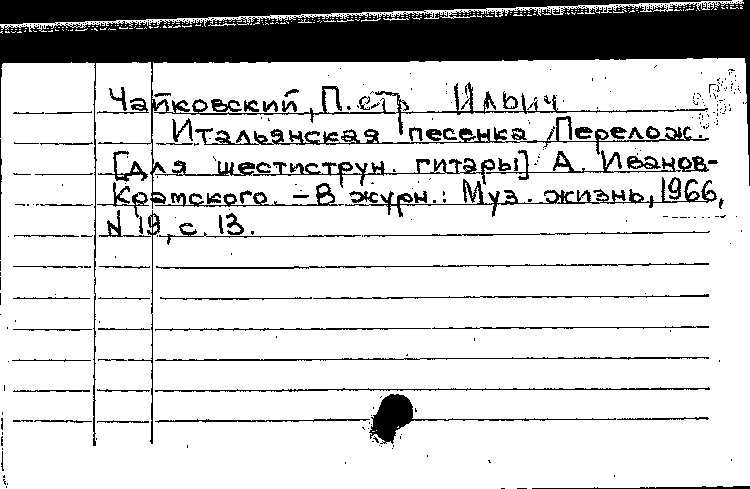 Чайковский, П.етр Ильич
Итальянская песенка /Перелож.
[для шестиструн. гитары] А. Иванов-
Крамского. – В журн.: Муз. жизнь, 1966,
N 19, с. 13.